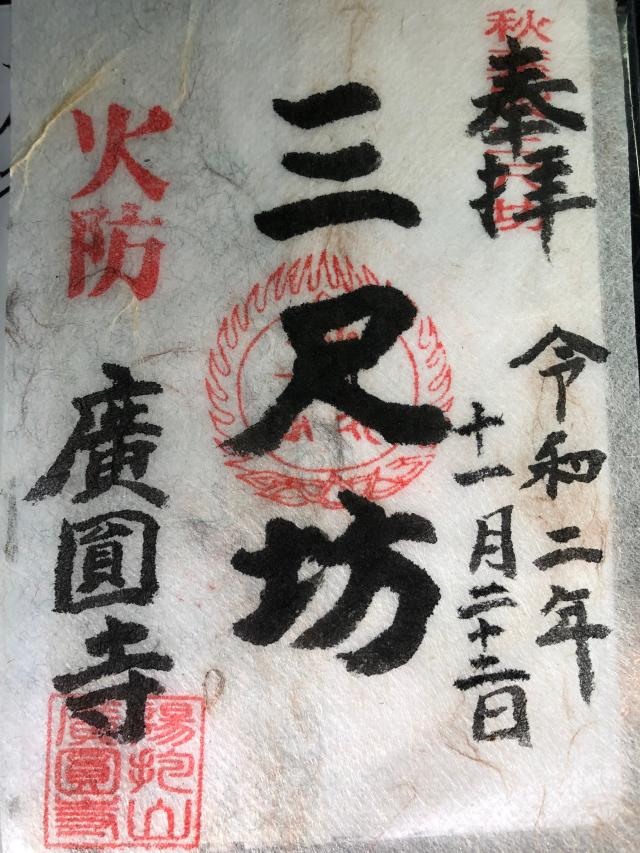 奉拝
令和二年
十一月二十二日
三尺坊
火防
廣圓寺
陽抱山
廣圓寺